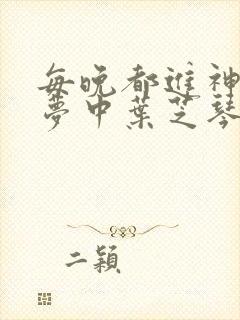 每晚都进神
梦中葉芝琴
二颖